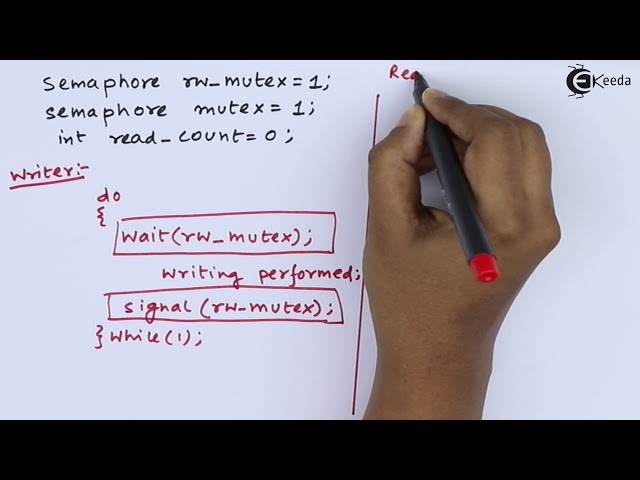 semaphore rw_mutex = 1;
semaphore mutex = 1;
int read_count = 0;
Writer:-
do
{
wait(rw_mutex);
writing performed;
signal(rw_mutex);
} while(1);
Rea
Keeda